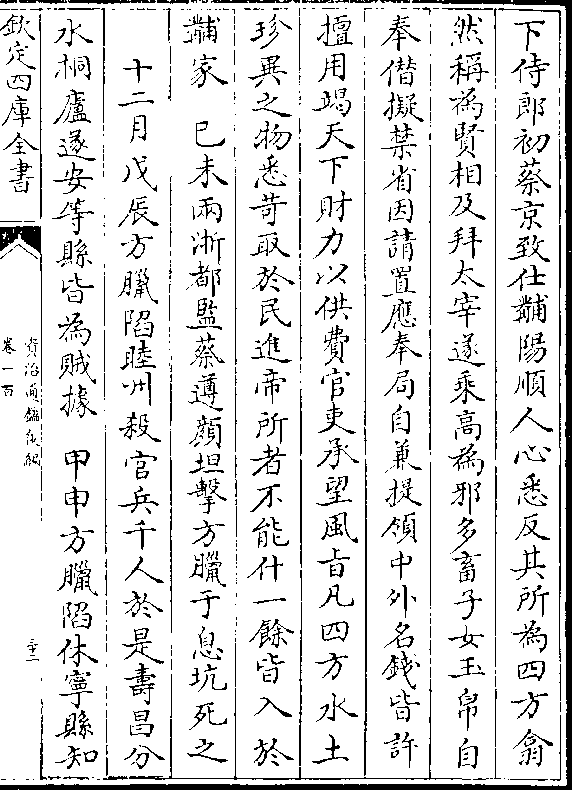 下侍郎初蔡京致仕黼陽順人心悉反其所為四方翕
然稱為賢相及拜太宰遂乘高為邪多畜子女玉帛自
奉僭擬禁省因請置應奉局自兼提領中外名錢皆許
擅用竭天下財力以供費官吏承望風㫖凡四方水土
珍異之物悉苛取於民進帝所者不能什一餘皆入於
黼家　己未兩浙都監蔡遵顔坦擊方臘于息坑死之
十二月戊辰方臘陷睦州殺官兵千人於是壽昌分
水桐廬遂安等縣皆為賊據　甲申方臘陷休寧縣知
欽定四庫全書
資治通鑑後編
卷一百
三十二